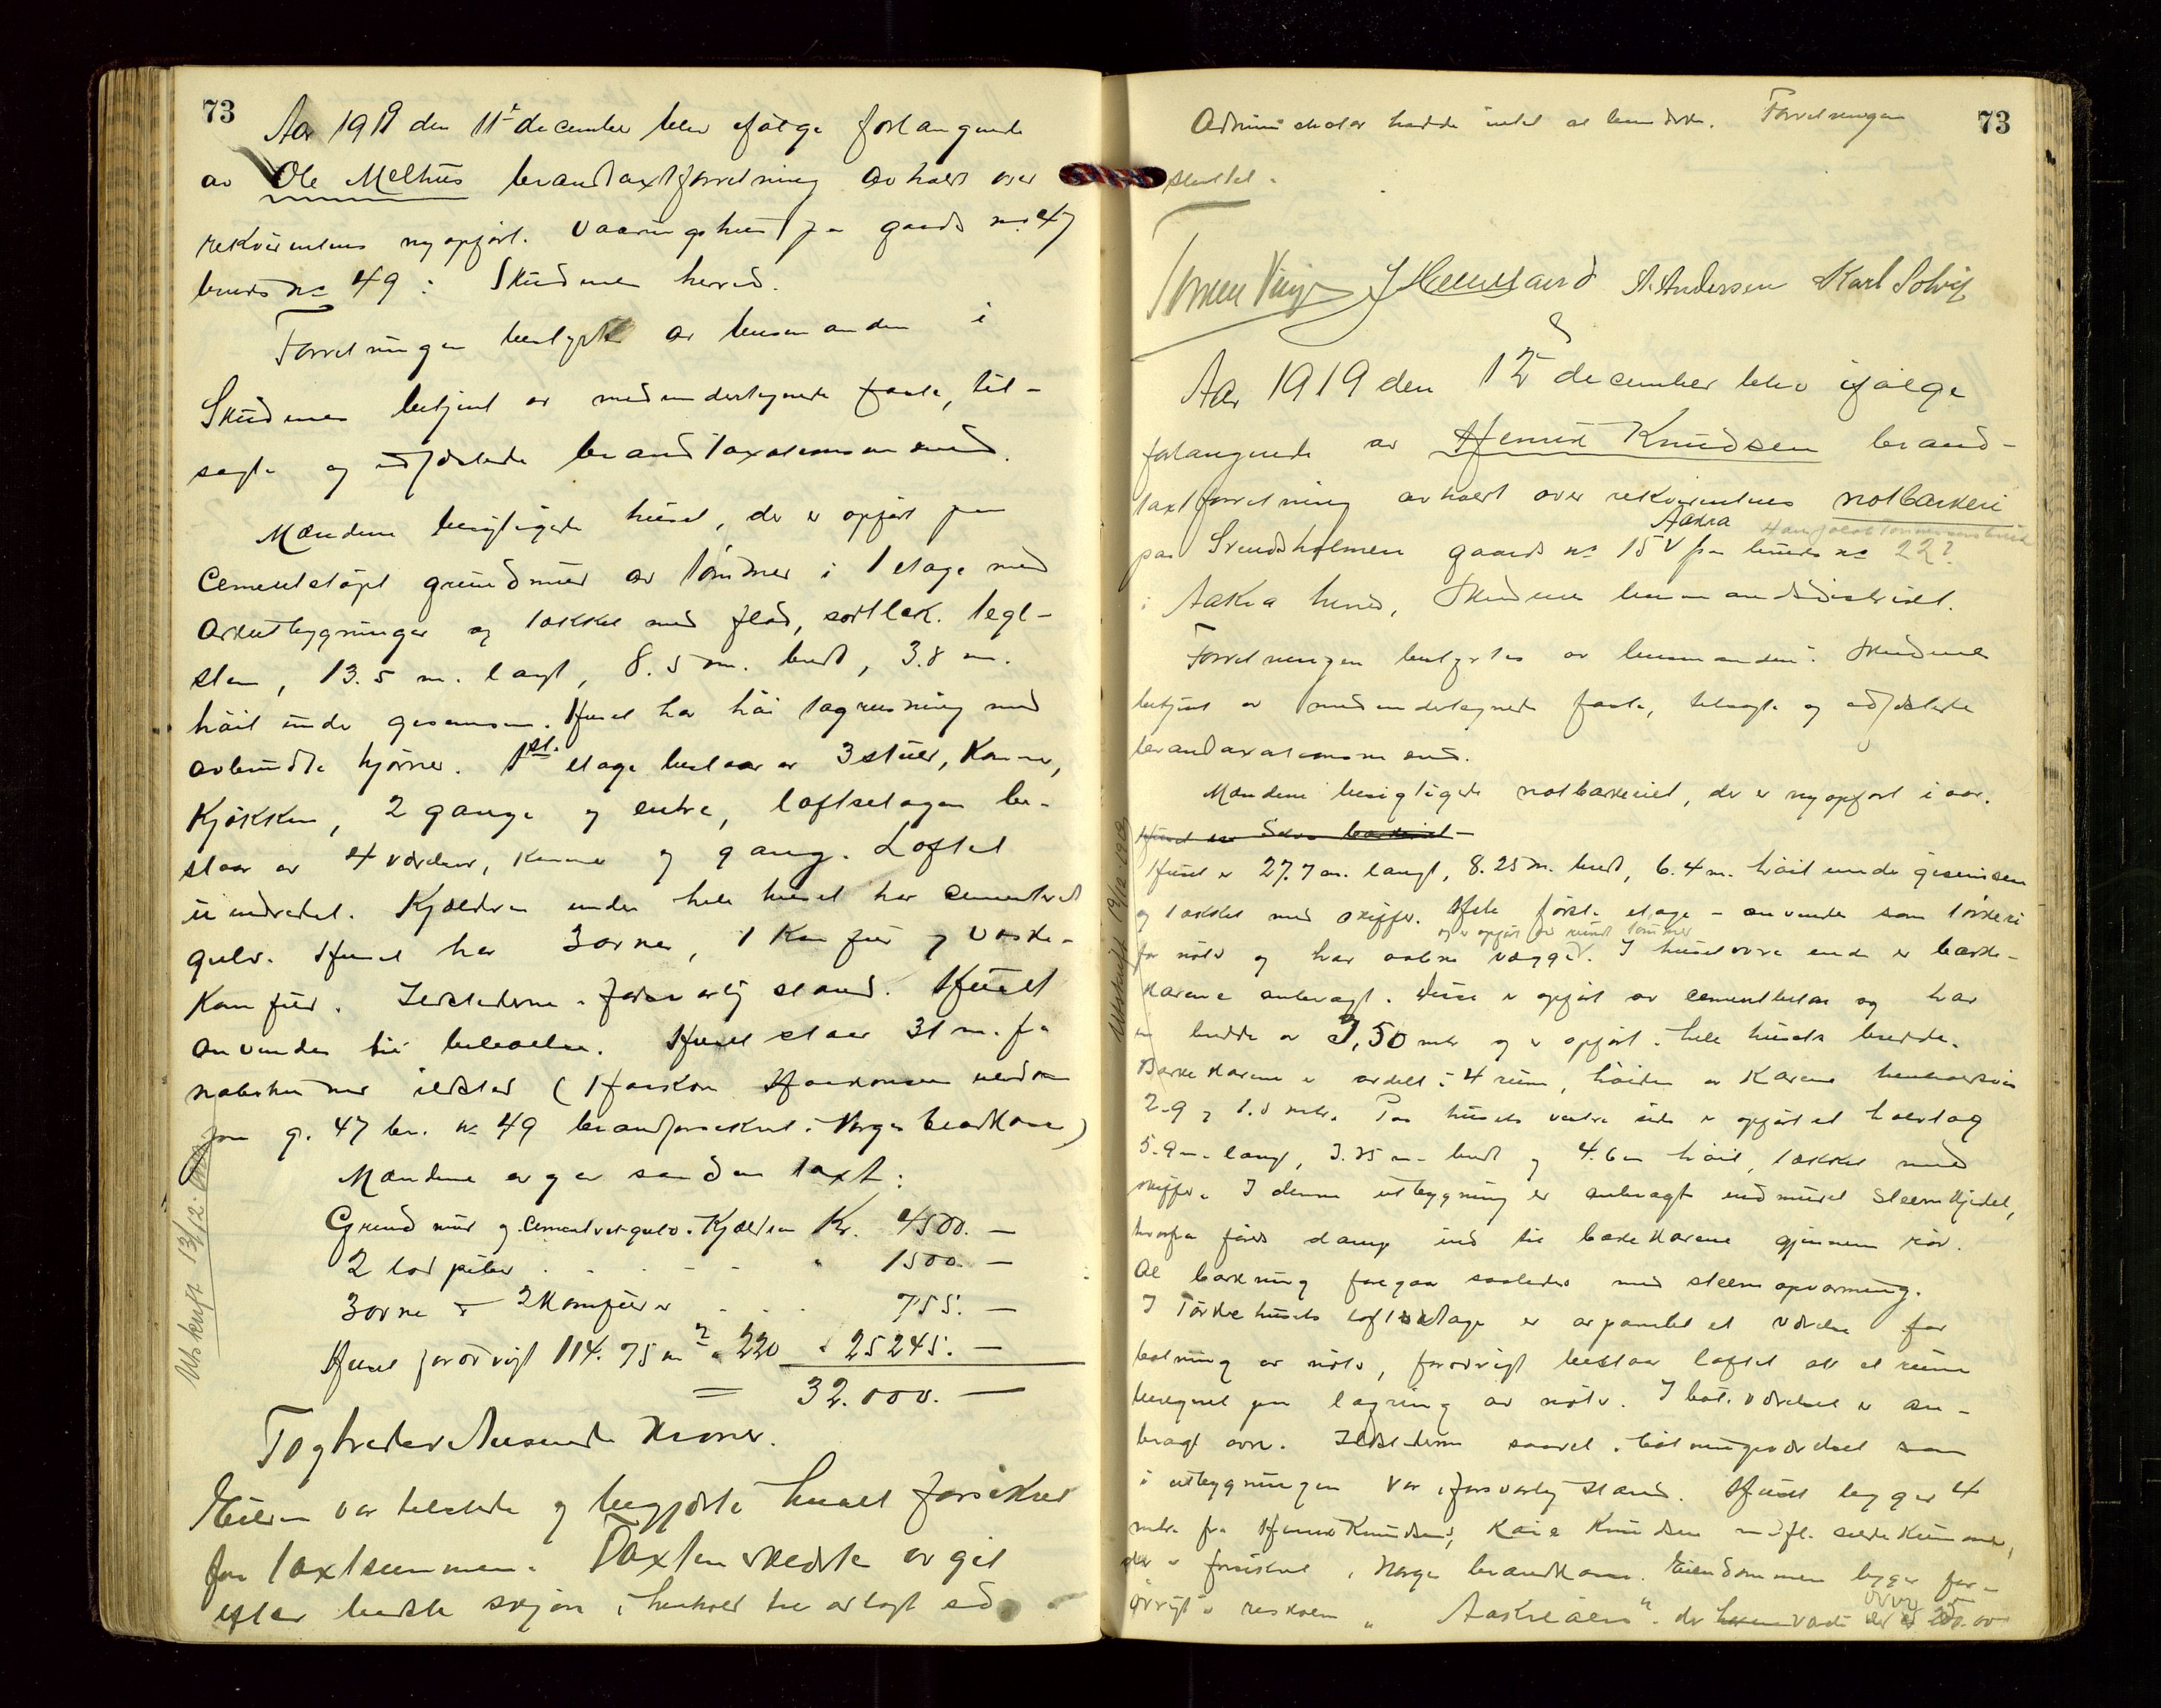 73
Aar 1919 den 11te december blev ifølge forlangende
av Ole Melhus brandtaxtforretning avholdt over
rekvirentens nyopført. vaaningshus paa gaards no 47
bruds no 49 i Skudenes herred.
Forretningen bestyrtes av lensmanden i
Skudenes betjent av medundertegnede faste, til-
sagte og edfæstede brandtaxationsmænd.
Mændene besigtigede huset, der er opført paa
cementstøpt grundmur av tømmer i 1 etage med
arkutbygninger og tækket med flad, sortlak. tegl-
sten, 13.5 m. langt, 8.5 m. bredt, 3.8 m.
høit under gesemsen. Huset har høi tagreisning med
avbrudte hjørner. 1st. etage bestaar av 3 stuer, Kammer,
Kjøkken, 2 gange og entre, loftsetagen be-
staar av 4 værelser, kammer og gang. Loftet
uindredet. Kjælderen under hele huset har cementeret
gulv. Huset har 3 ovne, 1 Komfur og vaske-
komfur. Ildstederne i forsvarlig stand. Huset
anvendes til beboelse. Huset staar 31 m. fra
nabohus med ildsted (Haakon Haakonsen eiendom
paa g. 47 br. no 49 brandforsikret i Norges brandkasse)
Mændene avgav saadan taxt:
Grundmur og cementert gulv i Kjælderen Kr. 4500. —
2 lod piber . . - - - " 1500. —
3 ovne + 2 Komfurer . . . 755. —
Huset forøvrigt 114.75 m2 a 220 " 25245. —
= 32.000. —
Togtredve tusende Kroner.
Eieren var tilstede og begjærte huset forsikret
for taxtsummen. Taxten skedde avgit
efter bedste skjøn i henhold til avlagt ed
Utskrift 13/12
Administrator hadde intet at bemærke. Forretningen
73
sluttet.
A. Andersen Karl Solvig
Aar 1919 den 12te december blev ifølge
forlangende av Henrik Knudsen brand-
taxtforretning avholdt over rekvirentens notbarkeri
Aakra
paa Svendsholmen gaards no 15 v fra bruds no 22?
i Aakra herred, Skudenes lensmandsdistrikt.
Forretningen bestyrtes av lensmanden i Skudenes
betjent av medundertegnede faste, tilsagte og edfæstede
brandtaxationsmænd.
Mændene besigtigede notbarkeriet, der er nyopført i aar.
Huset er 27.7 m. langt, 8.25 m. bredt, 6.4 m. høit under gesimsen
og tækket med skiffer. Hele første etage - anvendes som tørkeri
og er opført av rundt tømmer
for nøter og har aabne vægge. I husets øvre ende er barke-
karene anbragt. Disse er opført av cementbeton og har
en bredde av 3,50 mtr og er opført i hele husets bredde.
Barkekarene er avdelt i 4 rum, høiden av karene henholdsvis
2.9 og 1.0 mtr. Paa husets vestre side er opført et halvtag
5.9 m. langt, 3.75 m. bredt og 4.6 m høit, tækket med
skiffer. I denne utbygning er anbragt indmuret steamkjedel,
hvorfra føres damp ind til barkekarene gjennem rør.
Al barkning foregaar saaledes med steamopvarming.
I Tørkehusets loftsetage er avpanelet et værelse for
bøtning av nøter, forøvrigt bestaar loftet av et rum
beregnet paa lagring av nøter. I bøt. værelset er an-
bragt ovn. Ildstederne saavel i bøtningsværelset som
i utbygningen var i forsvarlig stand. Huset ligger 4
mtr. fra Henrik Knudsens, Kaie Knudsen m.fl. sildekummer,
der er forsikret i Norges brandkasse. Eiendommen ligger for-
øvrigt i reskoen "Aakreøen" der
Utskrift 19/12 1919